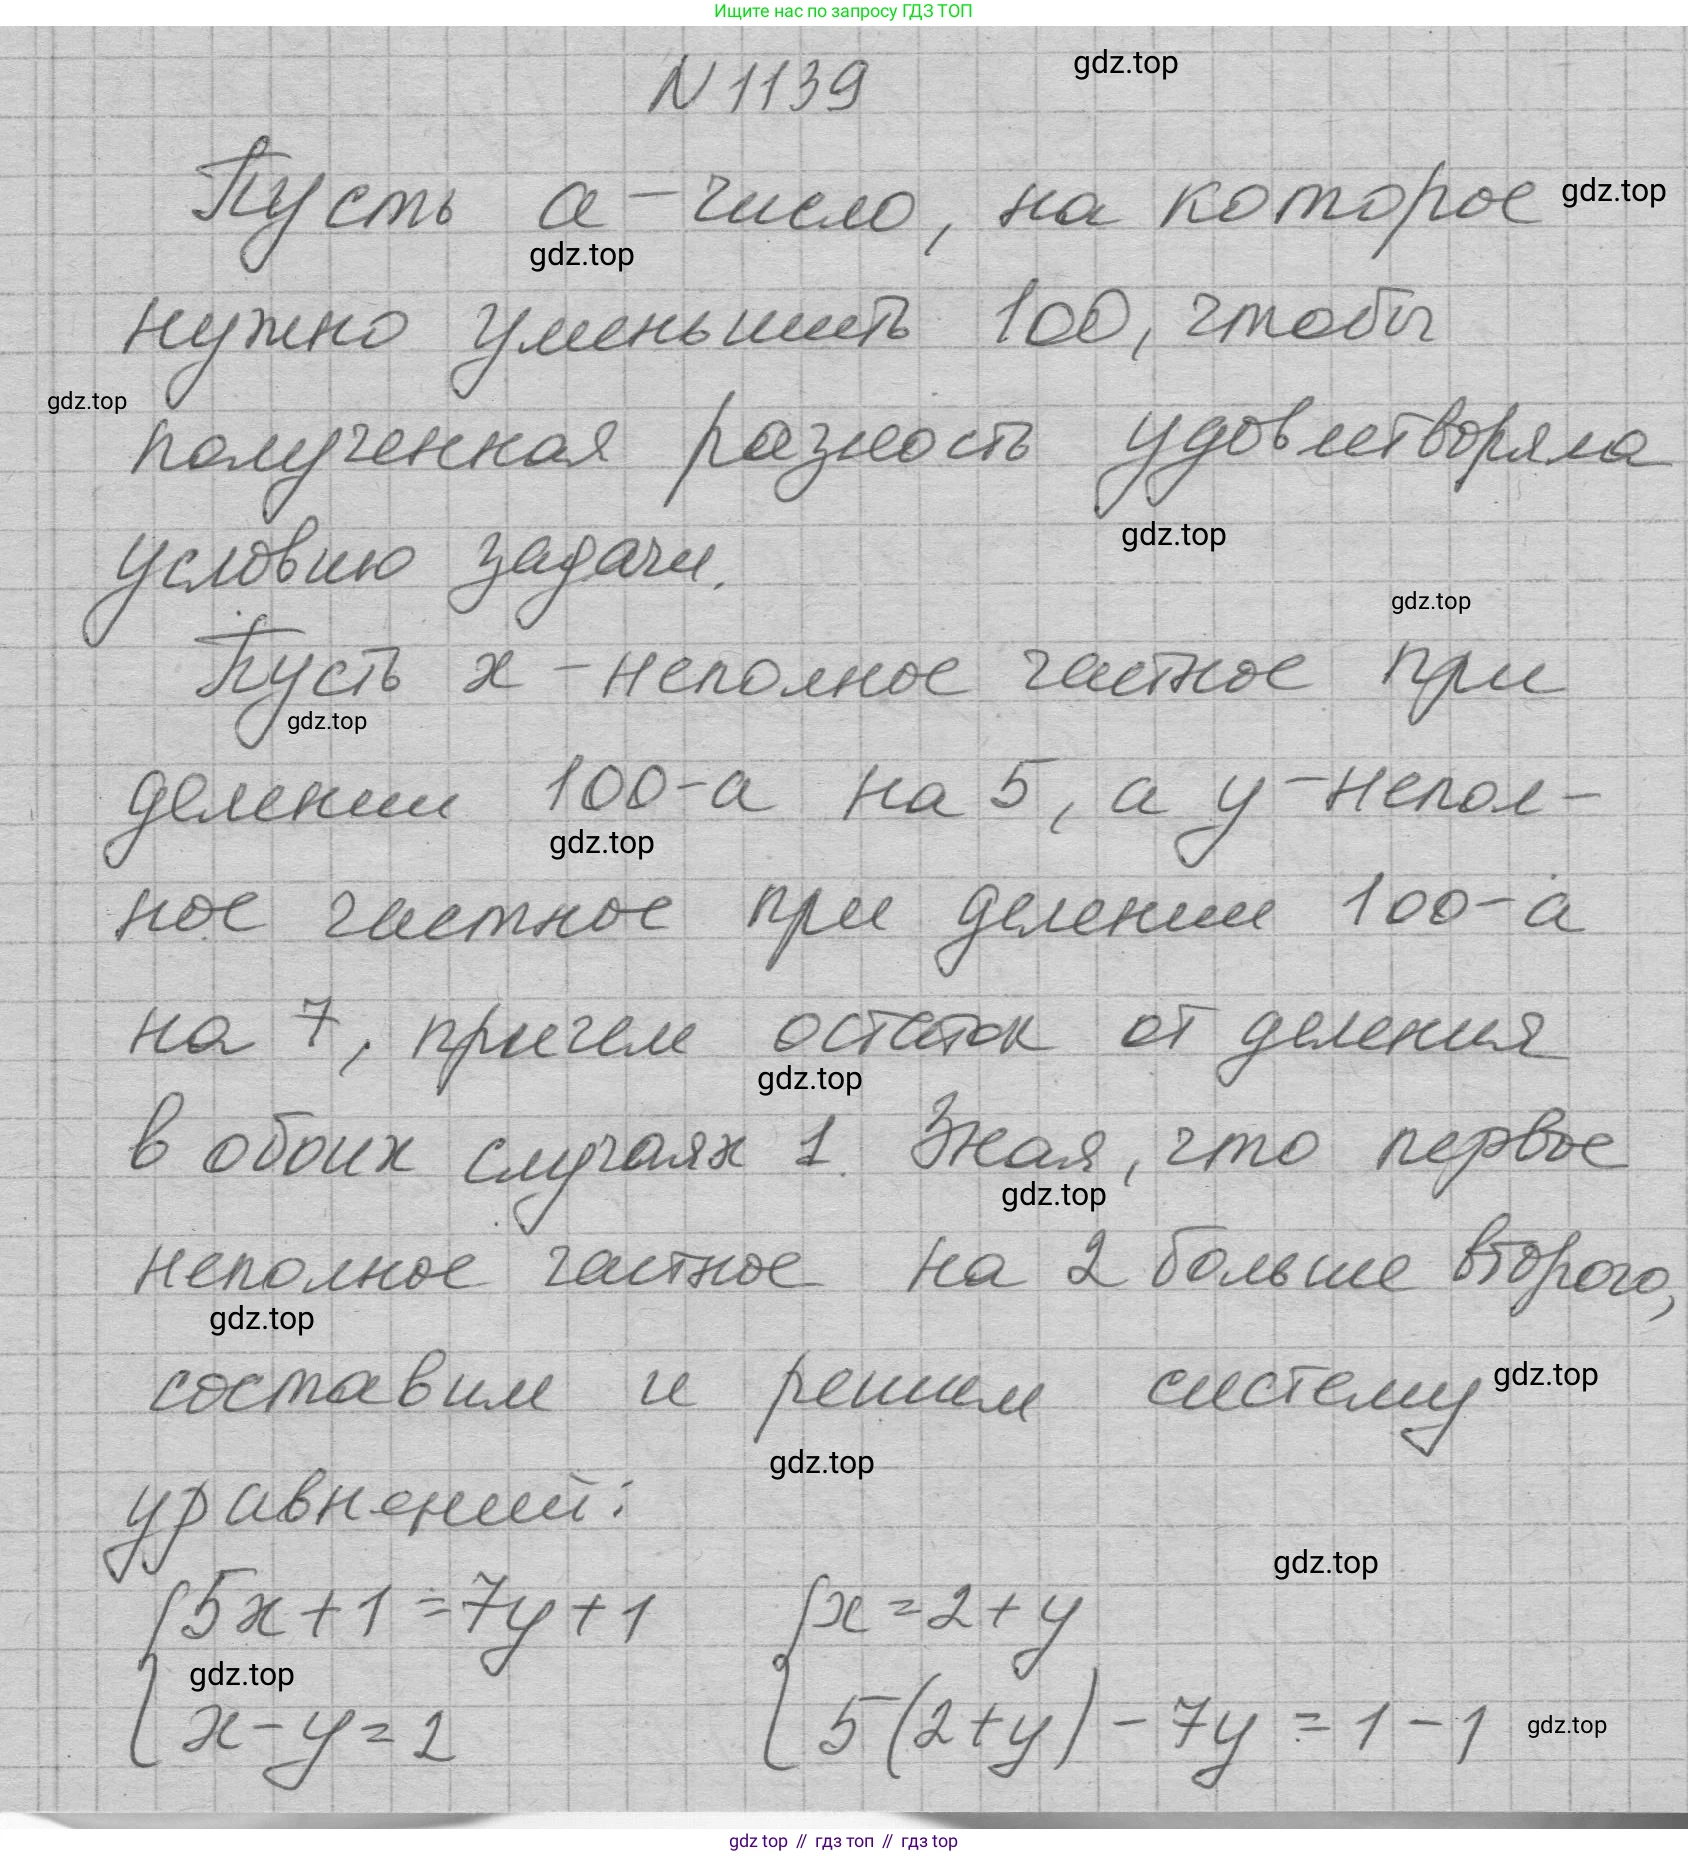 Ищите нас по запросу ГДЗ ТОП
N 1139
gdz.top
Пусть a – число, на которое
gdz.top
gdz.top
нужно уменьшить 100, чтобы
gdz.top
полученная разность удовлетворяла
gdz.top
условию задачи.
gdz.top
Пусть x – неполное частное при
gdz.top
делении 100-a на 5, а y – непол-
gdz.top
ное частное при делении 100-a
на 7, причем остаток от деления
gdz.top
в обоих случаях 1. Зная, что первое
gdz.top
неполное частное на 2 больше второго,
gdz.top
составим и решим систему
gdz.top
gdz.top
уравнений:
gdz.top
{5x+1=7y+1 {x=2+y
gdz.top
x-y=2 5(2+y)-7y=1-1
gdz.top
gdz top // гдз топ // гдз top